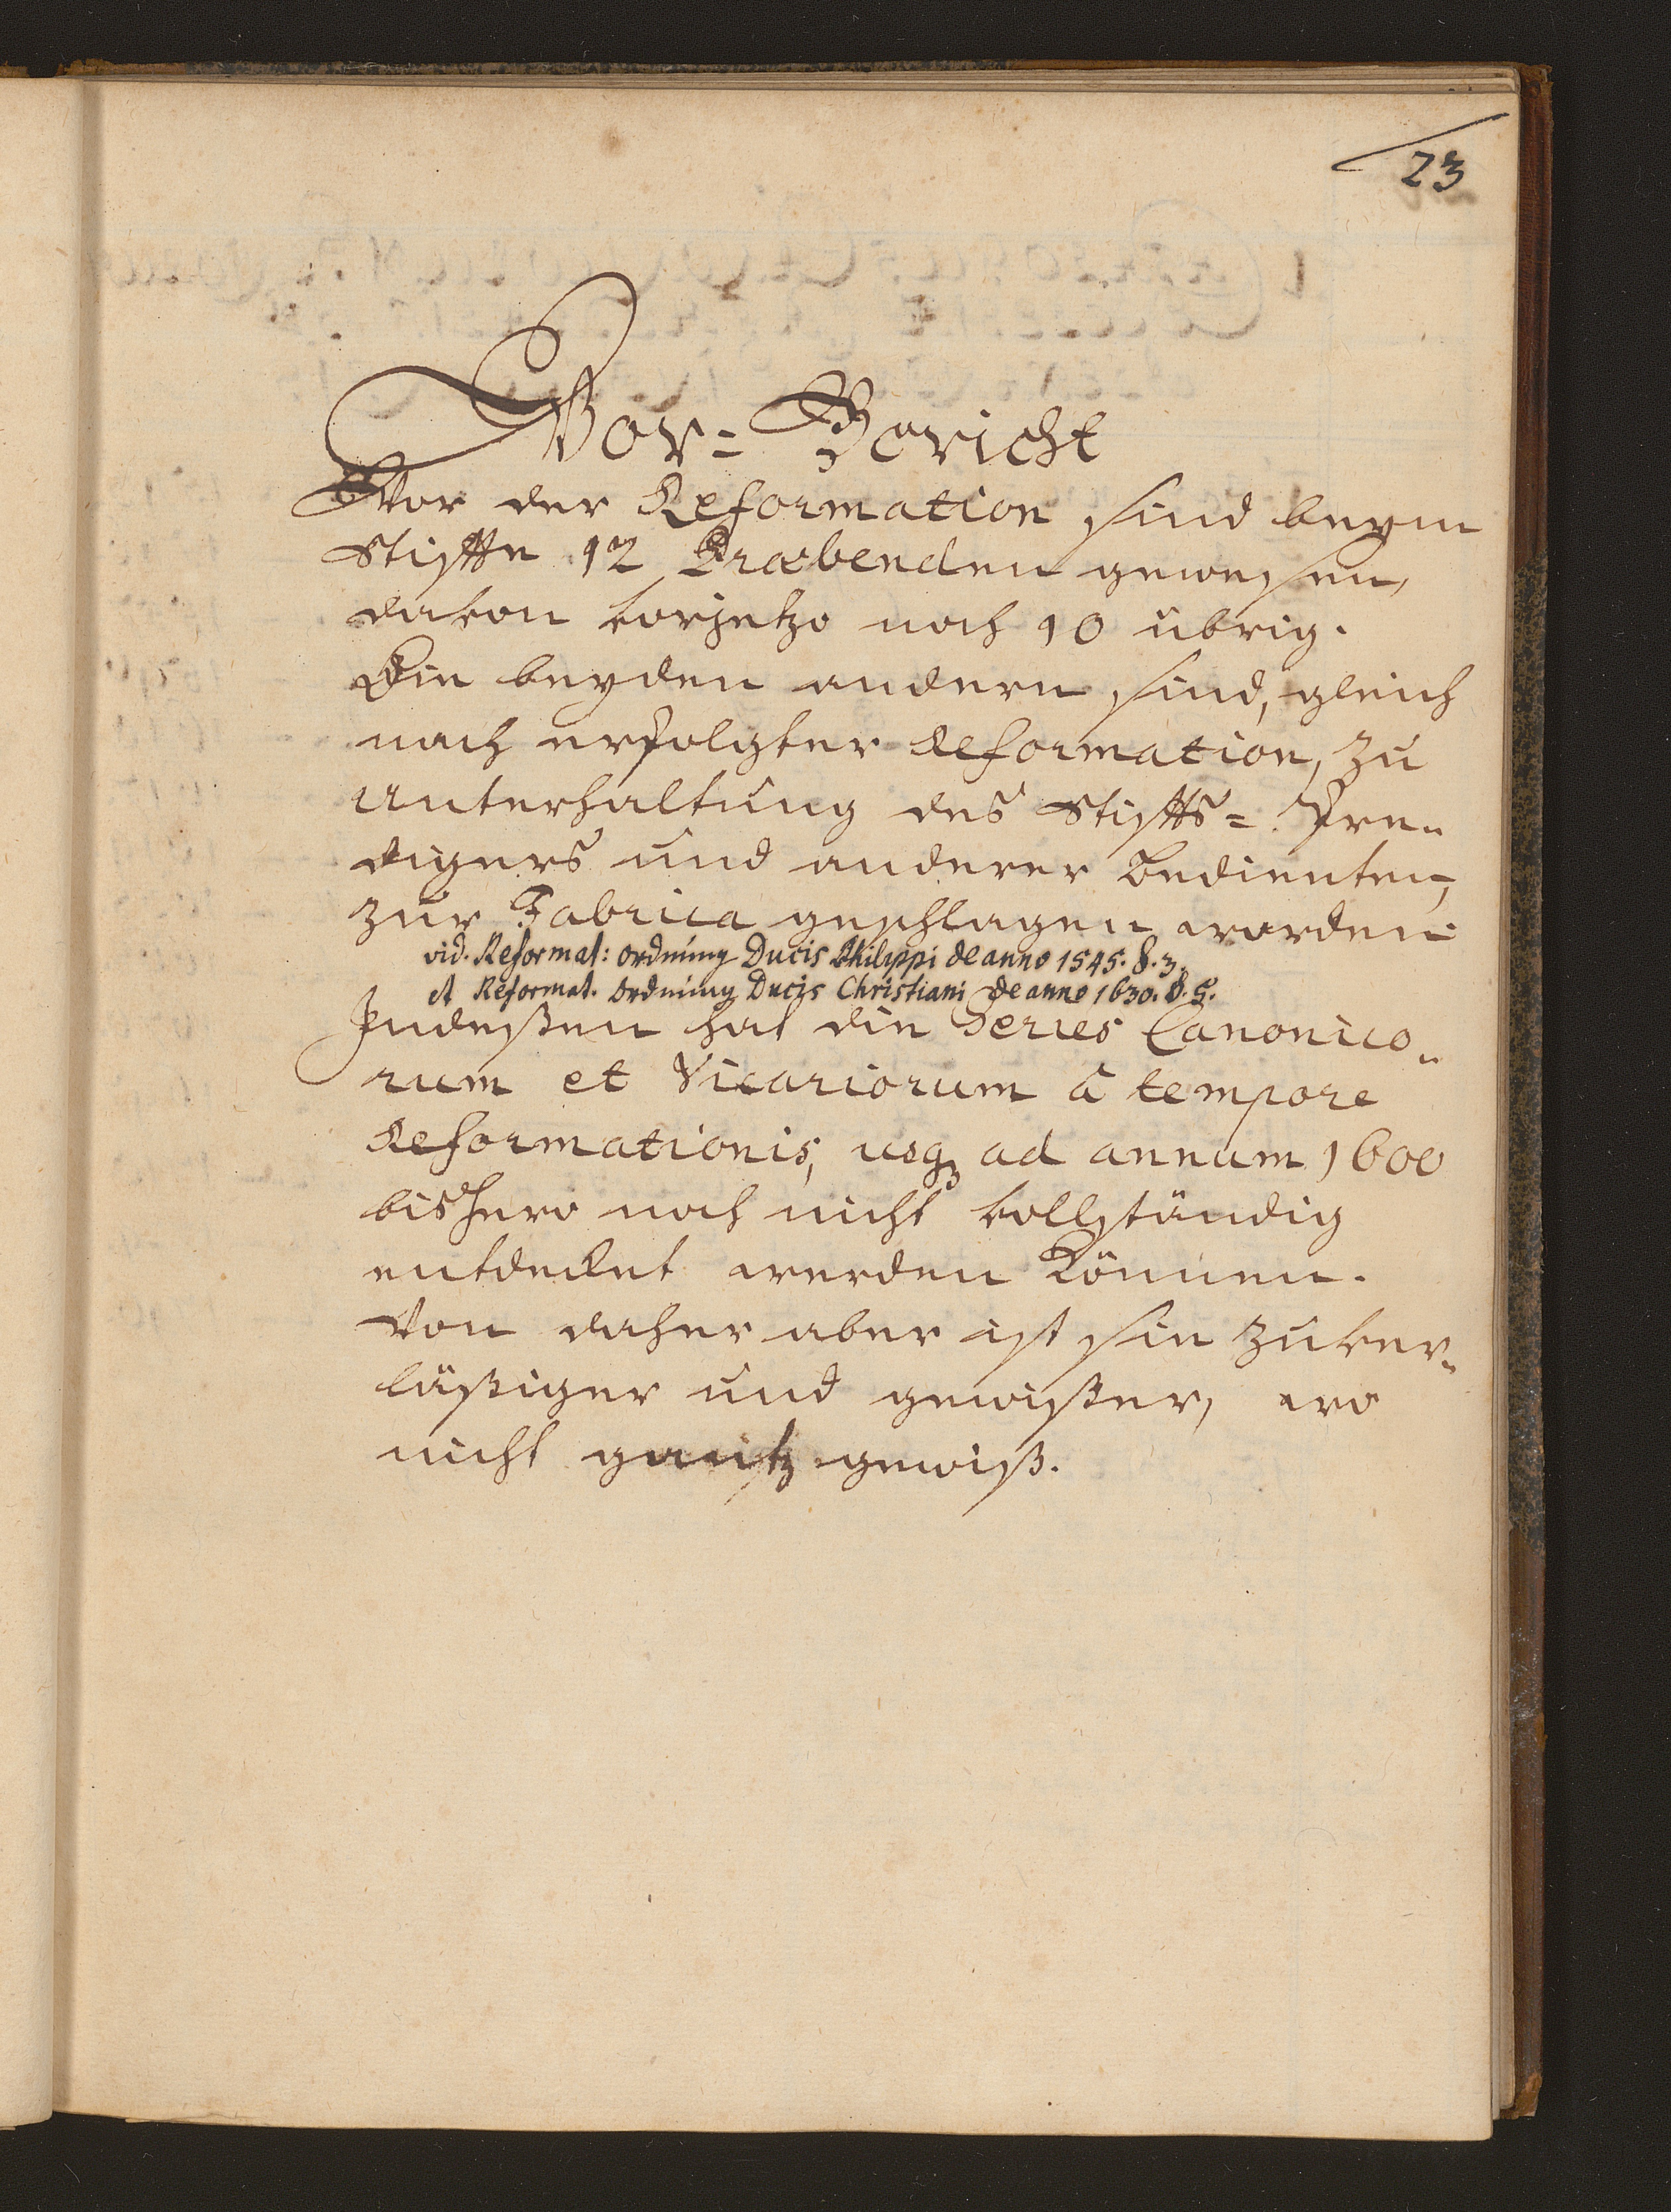 23
Vor= Bericht
Vor der Reformation sind beym
Stiffte 12 Præbenden gewesen,
davon vorjetzo noch 10 übrig.
Die beyden andern sind, gleich
nach erfolgter Reformation, zu
Unterhaltung des Stiffts= Pre=
digers und anderer Bedienten,
zur Fabrica geschlagen worden.
vid. Reformat: ordnung Ducis Philippi de anno 1545. §. 3.
et Reformat. ordnung Ducis Christiani de anno 1630. §. 5.
Indeßen hat die Series Canonico=
rum et Vicariorum â tempore
Reformationis, usq ad annum 1600
bishero noch nicht vollständig
entdecket werden können.
Von daher aber ist sie zuver=
läßiger und gewißer, wo
nicht gantz gewiß.